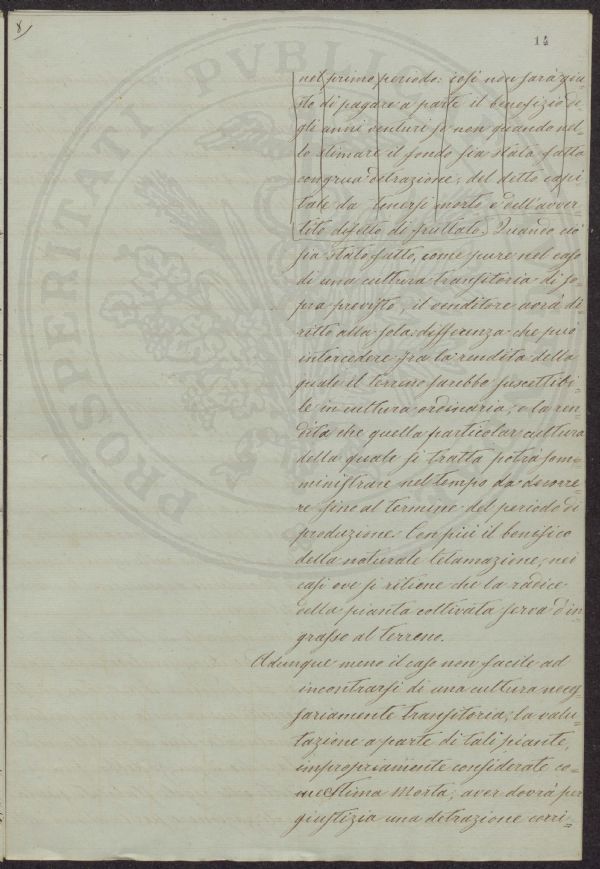 8)
14
nel primo periodo: così non sarà giu=
sto di pagare a parte il benefizio de=
gli anni venturi se non quando nel=
lo stimare il fondo sia stata fatta
congrua detrazione, del detto capi=
tale da tenersi morto o dell'avver=
tito difetto di fruttato. Quando ciò
sia stato fatto, come pure nel caso
di una cultura transitoria di so=
pra previsto, il venditore avrà di=
ritto alla sola differenza che può
intercedere fra la rendita della
quale il terreno sarebbe suscettibi=
le in cultura ordinaria, e la ren=
dita che quella particolar cultura
della quale si tratta potrà som=
ministrare nel tempo da decorre=
re fino al termine del periodo di
produzione. Con più il benefico
della naturale letamazione, nei
casi ove si ritiene che la radice
della pianta coltivata serva d'in=
grasso al terreno.
Adunque meno il caso non facile ad
incontrarsi di una cultura neces=
sariamente transitoria, la valu=
tazione a parte di tali piante,
impropriamente considerate co=
me Stima Morta, aver dovrà per
giustizia una detrazione corri=
PROSPERITATI PVBLICAE